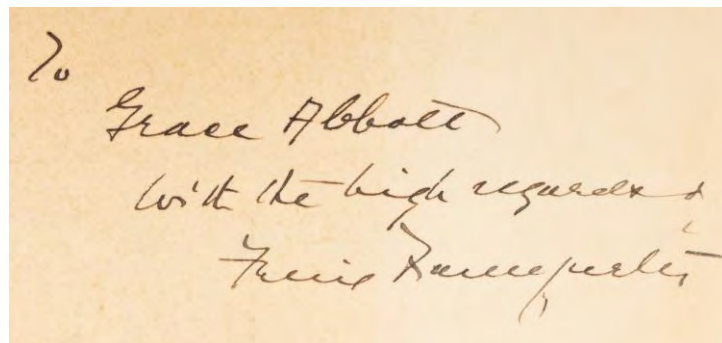 To
Grace Abbott
With the high regards of
Felix Frankfurter